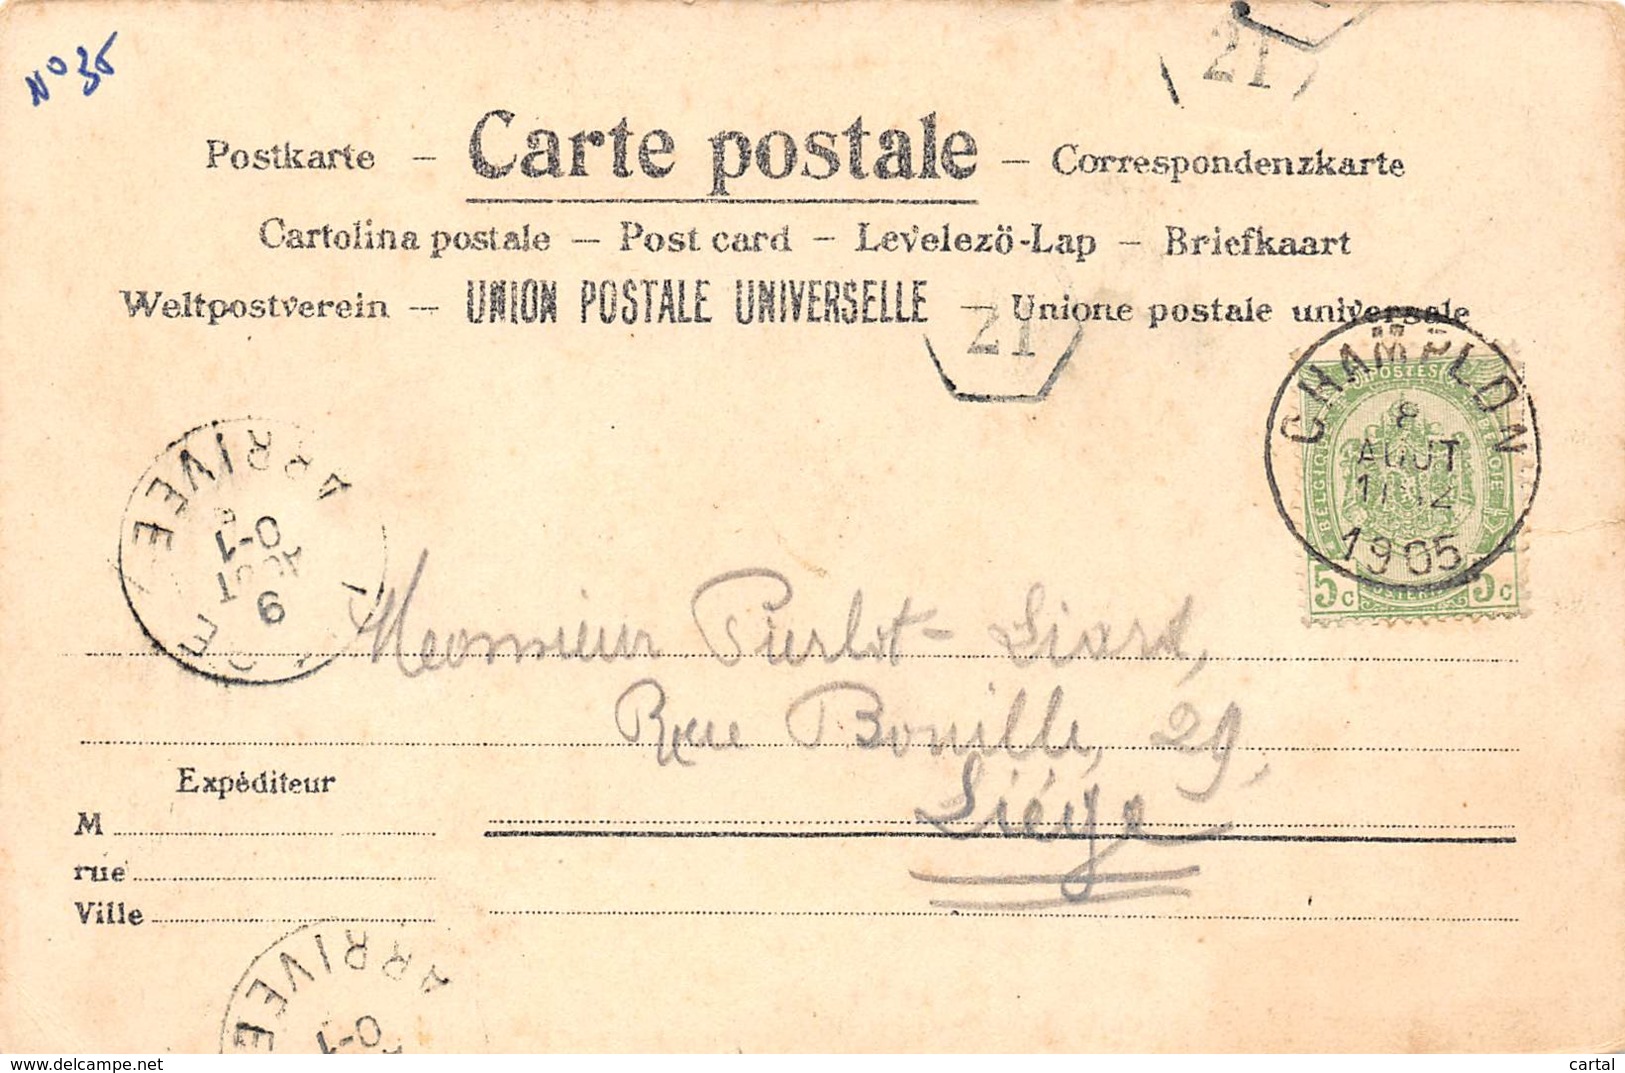 Nº 36
21
Postkarte — Carte postale — Correspondenzkarte
Cartolina postale — Post card — Levelezö-Lap — Briefkaart
Weltpostverein — UNION POSTALE UNIVERSELLE — Unione postale universale
21
CHAMPLON
8
AOUT
1905
POSTES
BELGIQUE
BELGIE
5c 5c
ARRIVEE
0-1
AOUT
9
Monsieur Purlot-Liard,
Rue Bouille, 29,
Liége
Expéditeur
M
rue
Ville
ARRIVEE
0-1
delcampe.net
cartal